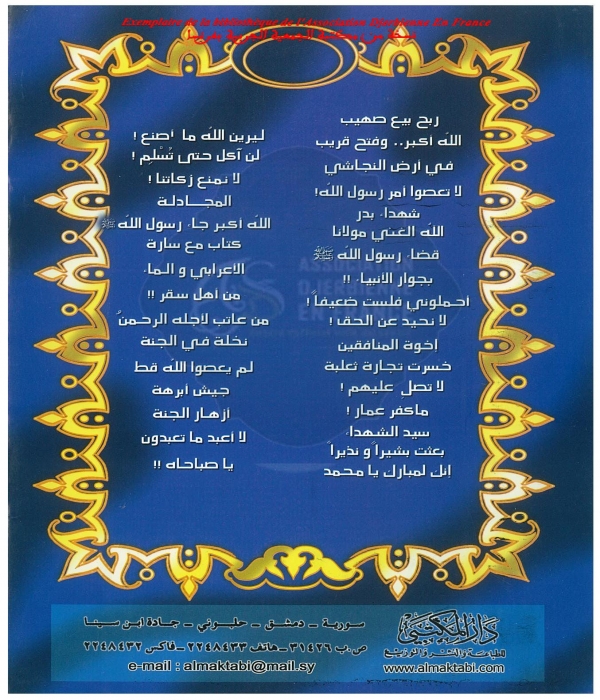 Exemplaire de la bibliothèque de l'Association Djerbienne En France
نسخة من مكتبة الجمعية الجربية بفرنسا
ربح بيع صهيب
الله أكبر.. وفتح قريب
في أرض النجاشي
لا تعصوا أمر رسول الله!
شهداء بدر
الله الغني مولانا
قضاء رسول الله ﷺ
بجوار الأنبياء !!
احملوني فلست ضعيفاً !
لا نحيد عن الحق !
إخوة المنافقين
خسرت تجارة ثعلبة
لا تصل عليهم !
ماكفر عمار !
سيد الشهداء
بعثت بشيراً و نذيراً
إنك لمبارك يا محمد
ليرين الله ما أصنع !
لن آكل حتى تُسْلم !
لا نمنع زكاتنا !
المجادلة
الله أكبر جاء رسول الله ﷺ
كتاب مع سارة
الاعرابي و الماء
من أهل سقر !!
من عاتب لأجله الرحمنُ
نخلة في الجنة
لم يعصوا الله قط
جيش أبرهة
أزهار الجنة
لا أعبد ما تعبدون
يا صباحاه !!
ASSOCIATION
DJERBIENNE
EN FRANCE
دار المكتبي
للطباعة والنشر والتوزيع
www.almaktabi.com
سورية – دمشق – حلبوني – جادة ابن سينا
ص.ب ٣١٤٢٦ – هاتف ٢٢٤٨٤٣٣ – فاكس ٢٢٤٨٤٣٢
e-mail : almaktabi@mail.sy